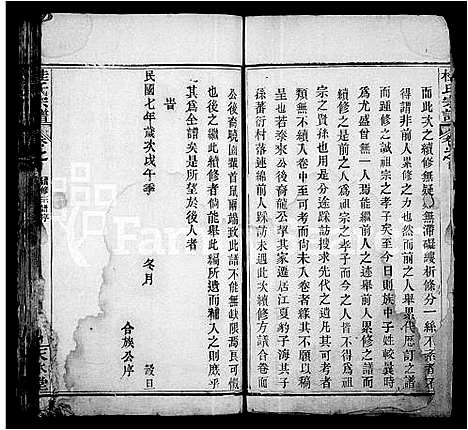 桂氏宗譜
而此次之續修無疑無滯礙縷析條分一絲不紊者
得謂非前人累修之力也然而前人舉累代歷訂
而踵修之誠祖宗之孝子矣至於今日則族中子姓較曩時
為尤盛苟無一人焉能繼前人之迹擴前人累修之譜而
續修之是前人為祖宗之孝子而今之人皆不得為祖
宗之賢孫也用是分途踩訪搜求先代之遺凡其可考者
類無不續入卷中至可考而未入卷者緣其不願以稿
呈也若泰來公後裔龍公華其家遷居江夏豹子海其子
孫蕃衍村落連綿前人踩訪未遇此次續修方合卷而
公後裔曉園輩首鼠兩端致此譜不能無缺限焉良可慨
也後之繼此續修者倘能舉此編所遺而補入之則庶乎
其為全譜矣是所望於後人者
旹
民國七年歲次戊午季冬月 穀旦
合族公序
桂氏宗譜
續修宗譜序
天香堂